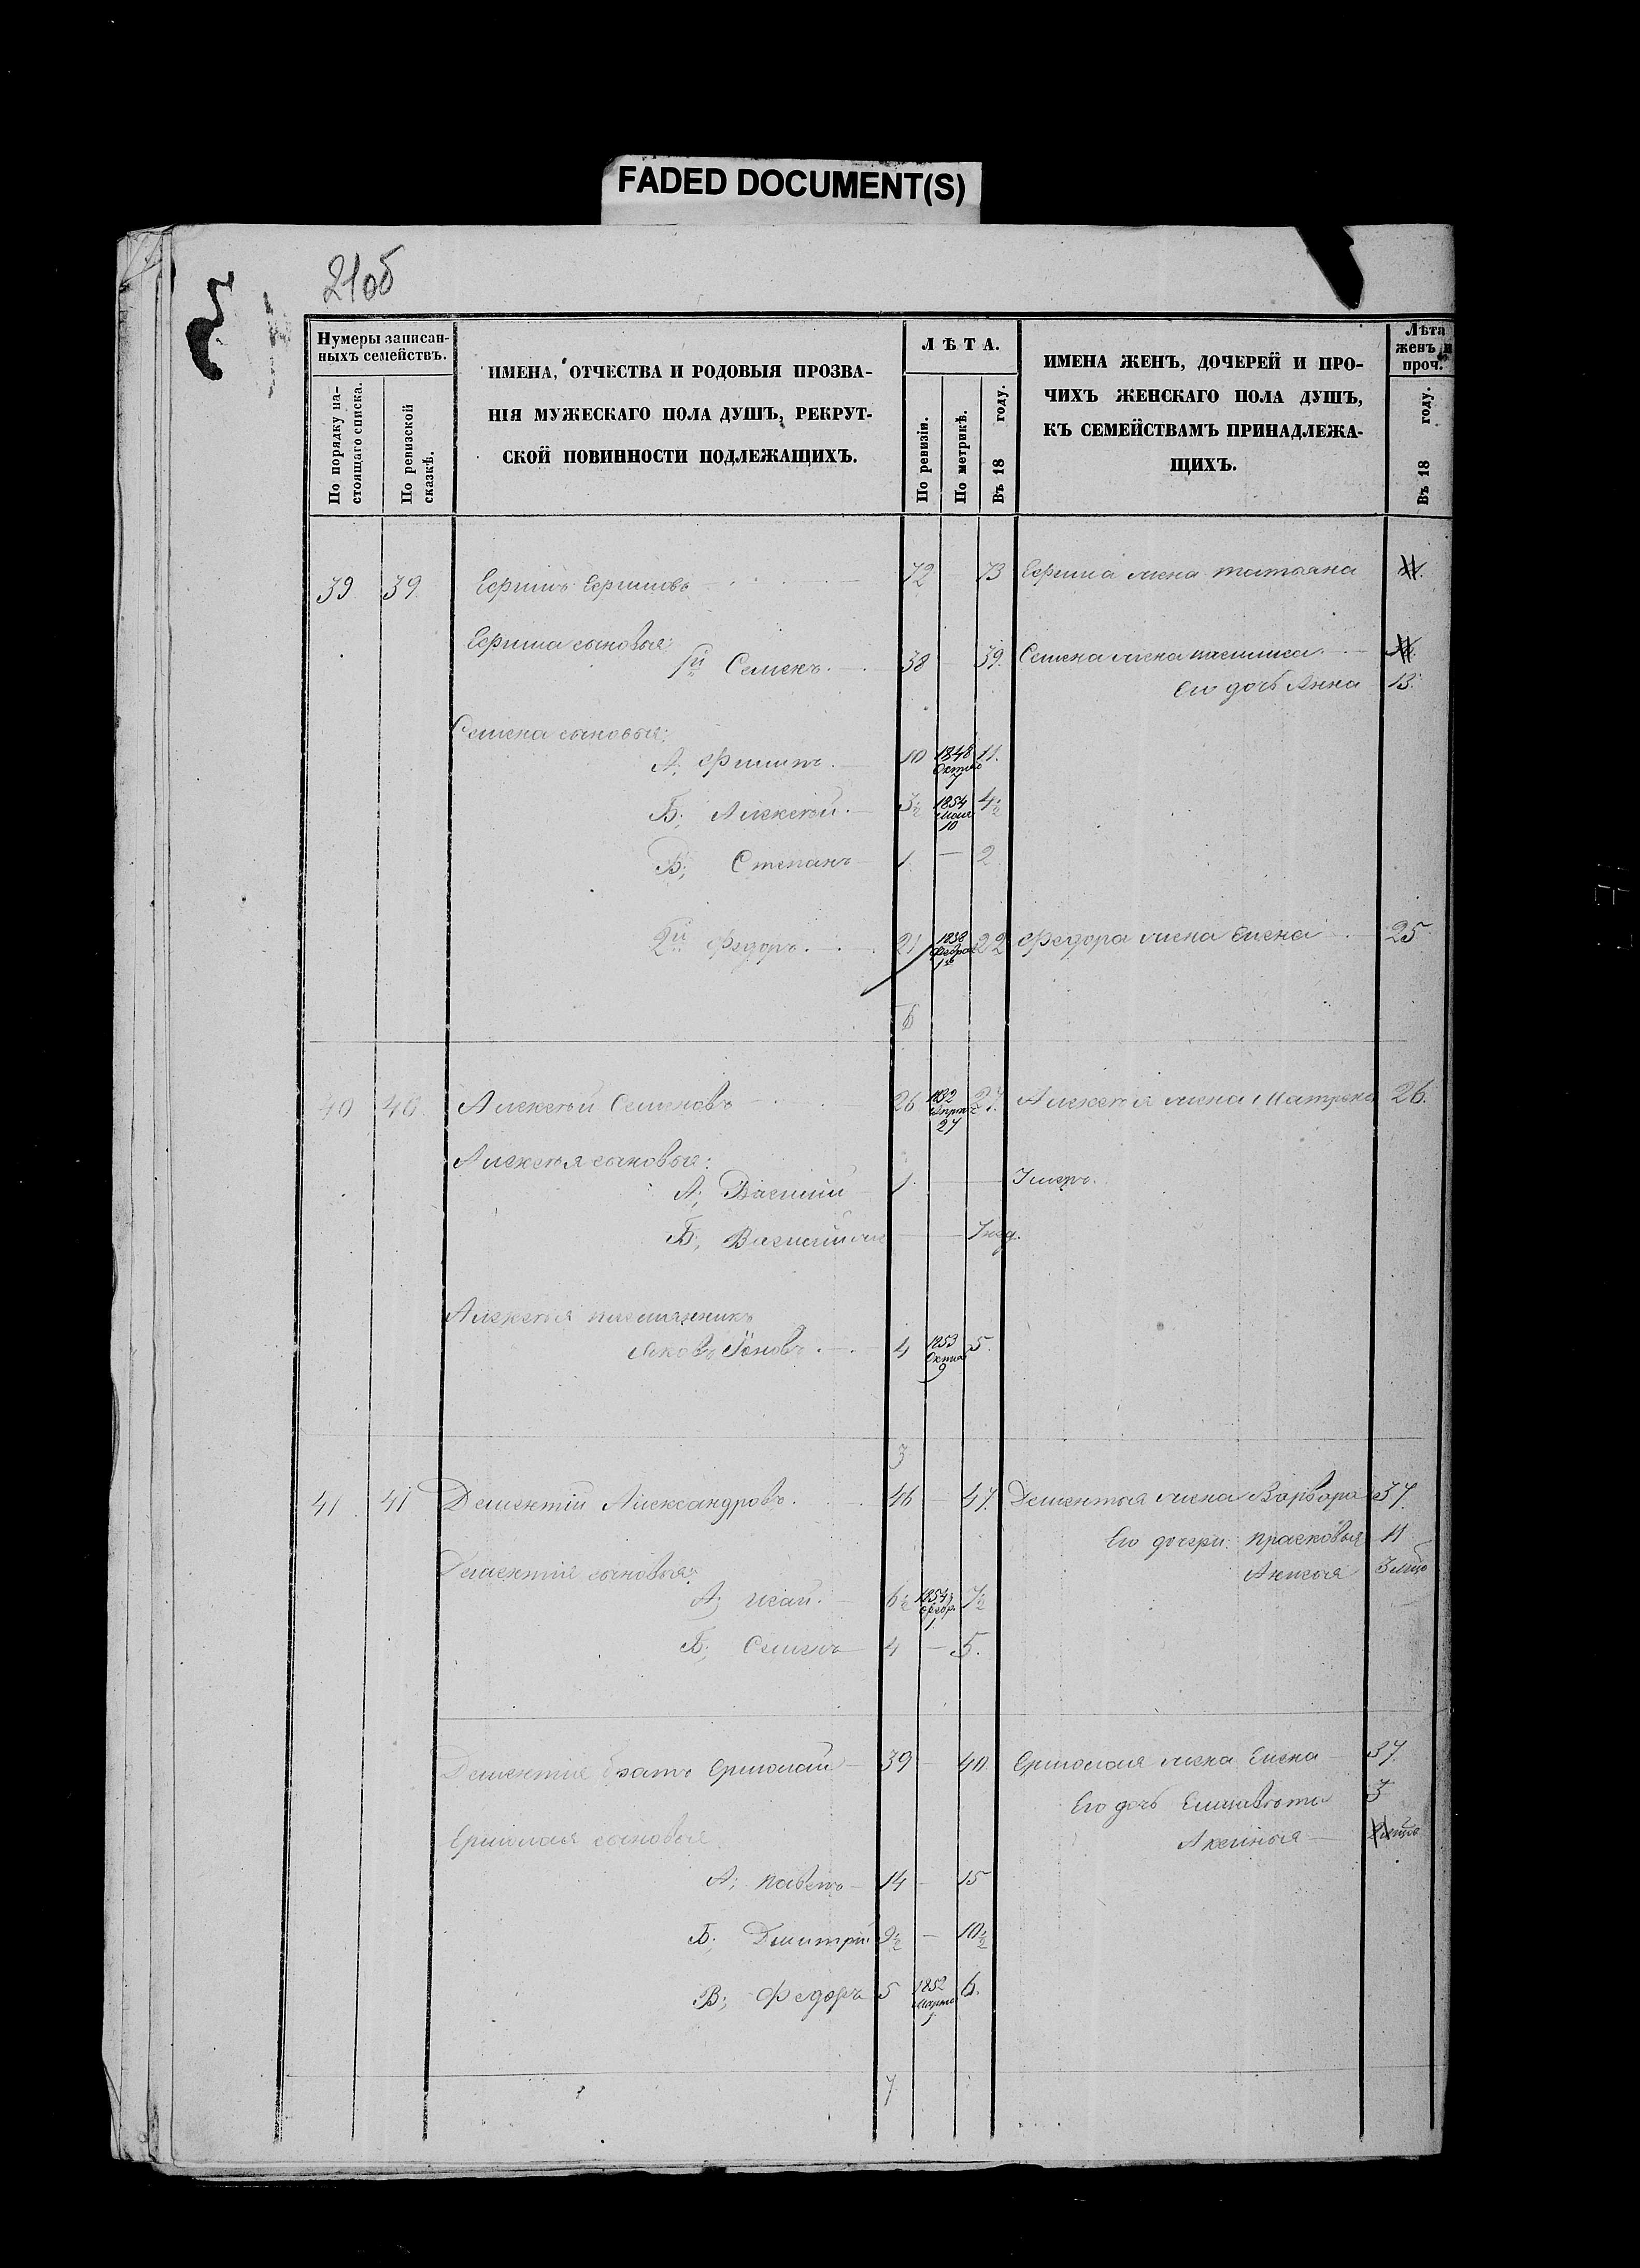 FADED DOCUMENT(S)
21об
Нумеры записан-
ныхъ семействъ.
По порядку на-
стоящаго списка.
По ревизской
сказкѣ.
ИМЕНА, ОТЧЕСТВА И РОДОВЫЯ ПРОЗВА-
НІЯ МУЖЕСКАГО ПОЛА ДУШЪ, РЕКРУТ-
СКОЙ ПОВИННОСТИ ПОДЛЕЖАЩИХЪ.
ЛѢТА.
По ревизіи.
По метрикѣ.
Въ 18 году.
ИМЕНА ЖЕНЪ, ДОЧЕРЕЙ И ПРО-
ЧИХЪ ЖЕНСКАГО ПОЛА ДУШЪ,
КЪ СЕМЕЙСТВАМЪ ПРИНАДЛЕЖА-
ЩИХЪ.
Лѣта
женъ и
проч.
Въ 18 году.
39 39 72 73 жена Татьяна
сыновья:
1й Семенъ. 38 39. Семена жена
Его дочь Анна 13.
Семена сыновья:
А, Филипъ. 10 1848 11.
Б; Алексѣй. 3½ 1854 10 4½
В; Степанъ 1. — 2
2й Федоръ. 21 1838 22 Федора жена Елена 25
6
40 40 Алексѣй Семеновъ 26 1832 27 27. Алексѣя жена Матрена 26.
Алексѣя сыновья:
А; Василій 1. Умеръ.
Б; Василій
Алексѣя племянникъ
Яковъ 4 1853 9 5.
3
41 41 Дементій Александровъ. 46 — 47. Дементья жена Варвара 37.
Его дочери: Прасковья 11
Дементія сыновья:
А; Исай. 6½ 1 7½
Б; Семенъ 4 — 5.
Дементія братъ Ермолай 39 — 40 Ермолая жена Елена 37.
Его дочь Елизавета 3
Ермолая сыновья
Аксинья
А; Павелъ 14 — 15
Б; Дмитрій 9½ — 10½
В; Федоръ 5 1852 Марта 6.
7